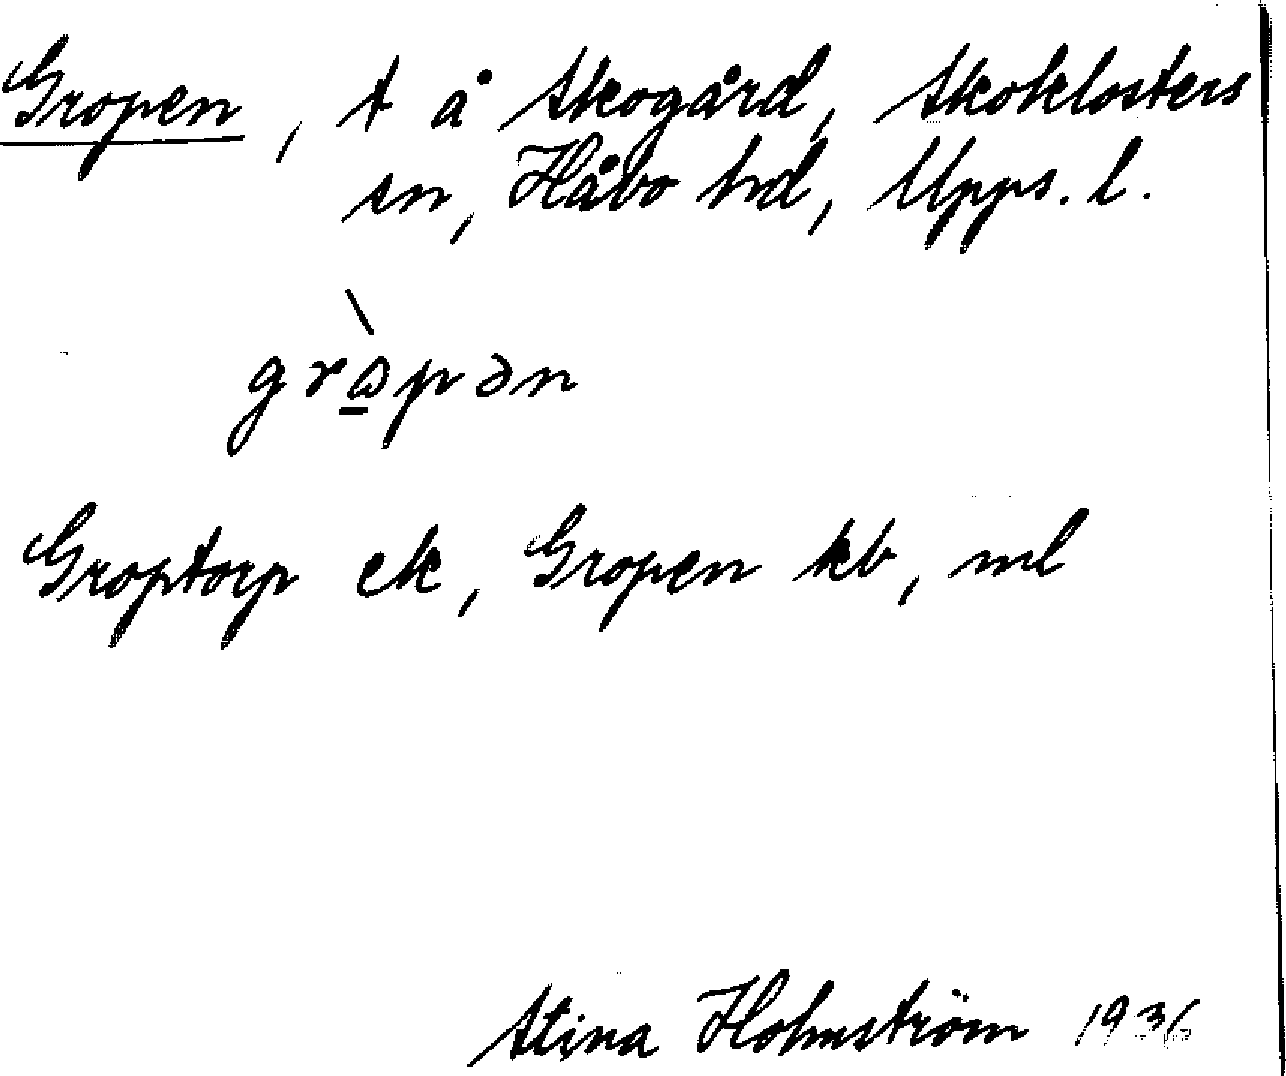 Gropen, t å Skogård, Skoklosters
sn, Håbo hd, Upps. l.
grɷ̲̀pən
Groptorp ek, Gropen kb, ml
Stina Holmström 1936